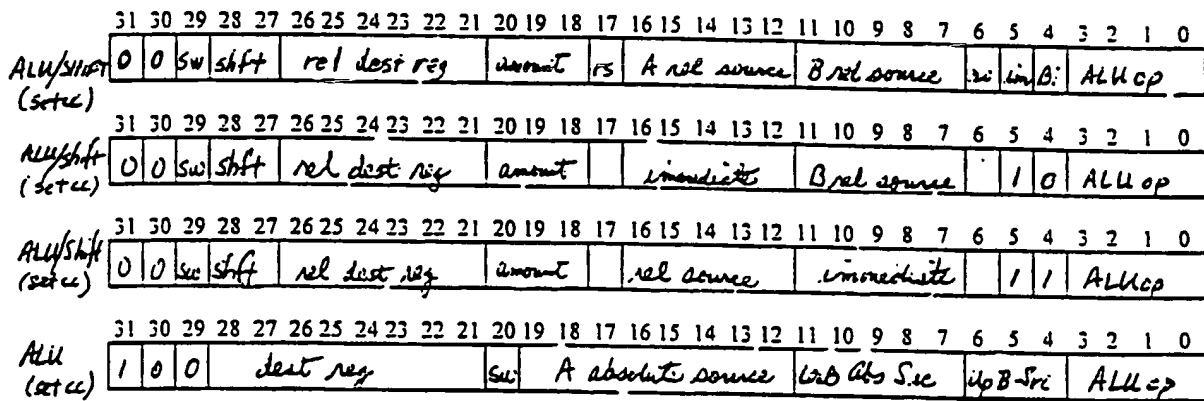 31 30 29 28 27 26 25 24 23 22 21 20 19 18 17 16 15 14 13 12 11 10 9 8 7 6 5 4 3 2 1 0
ALU/SHIFT 0 0 sw shft rel dest reg amount rs A rel source B rel source im Bi ALU op
(setcc)
31 30 29 28 27 26 25 24 23 22 21 20 19 18 17 16 15 14 13 12 11 10 9 8 7 6 5 4 3 2 1 0
ALU/shft 0 0 sw shft rel dest reg amount immediate B rel source 1 0 ALU op
(setcc)
31 30 29 28 27 26 25 24 23 22 21 20 19 18 17 16 15 14 13 12 11 10 9 8 7 6 5 4 3 2 1 0
ALU/Shift 0 0 sw shft rel dest reg amount rel source immediate 1 1 ALU op
(setcc)
31 30 29 28 27 26 25 24 23 22 21 20 19 18 17 16 15 14 13 12 11 10 9 8 7 6 5 4 3 2 1 0
ALU 1 0 0 dest reg sw A absolute source B Abs Src B-Src ALU op
(setcc)